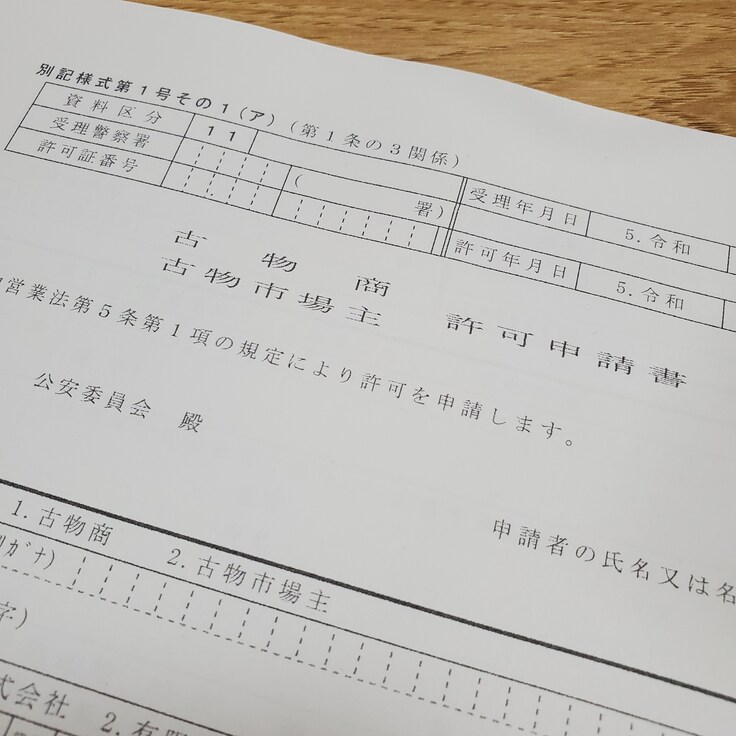 別記様式第1号その1（ア）（第1条の3関係）
資料区分 11
受理警察署 （ 署） 受理年月日 5.令和
許可証番号 許可年月日 5.令和
古物商
古物市場主 許可申請書
営業法第5条第1項の規定により許可を申請します。
公安委員会 殿
申請者の氏名又は名
1.古物商 2.古物市場主
ガナ）
字）
式会社 2.有限